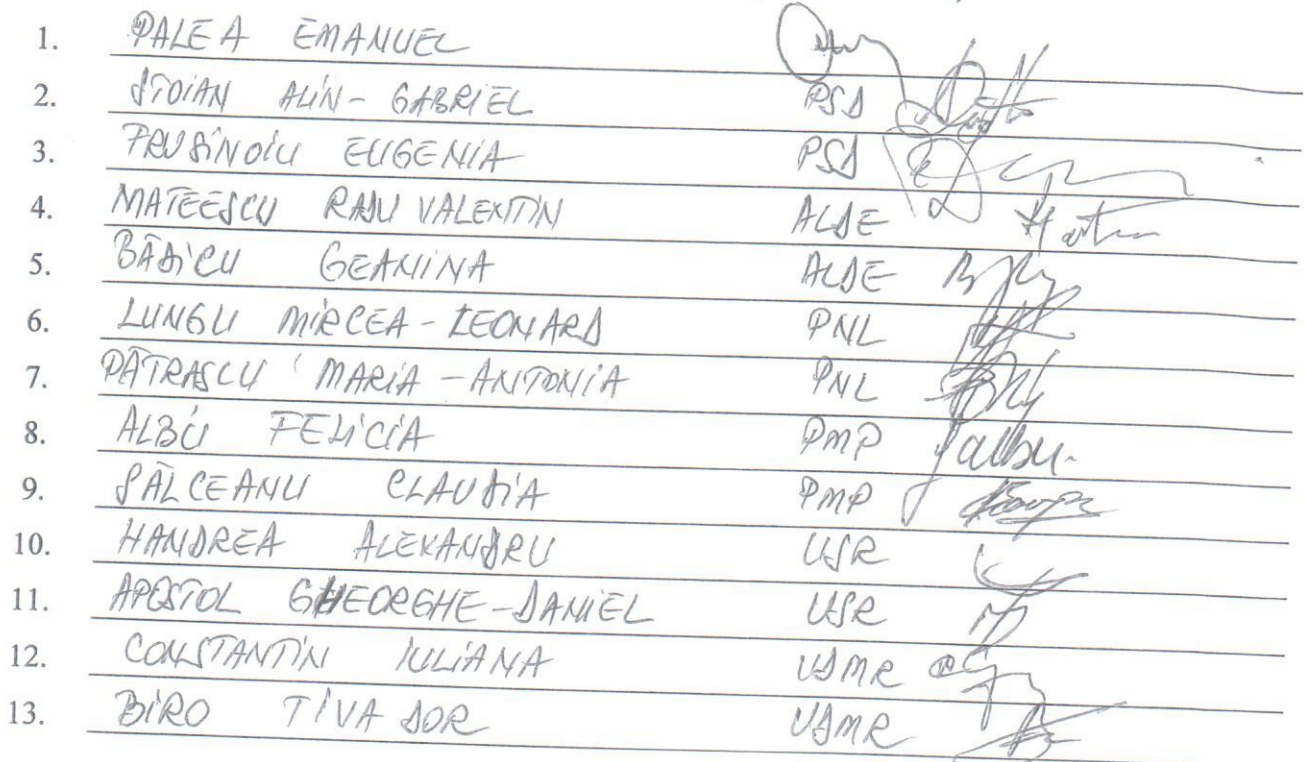 1. PALEA EMANUEL
2. STOIAN ALIN-GABRIEL PSD
3. FRUSINOIU EUGENIA PSD
4. MATEESCU RADU VALENTIN ALDE
5. BĂDICU GEANINA ALDE
6. LUNGU MIRCEA-LEONARD PNL
7. PĂTRAȘCU MARIA-ANTONIA PNL
8. ALBU FELICIA PMP falbu.
9. SĂLCEANU CLAUDIA PMP
10. HANDREA ALEXANDRU USR
11. APOSTOL GHEORGHE-DANIEL USR
12. CONSTANTIN IULIANA UDMR
13. BIRO TIVADOR UDMR